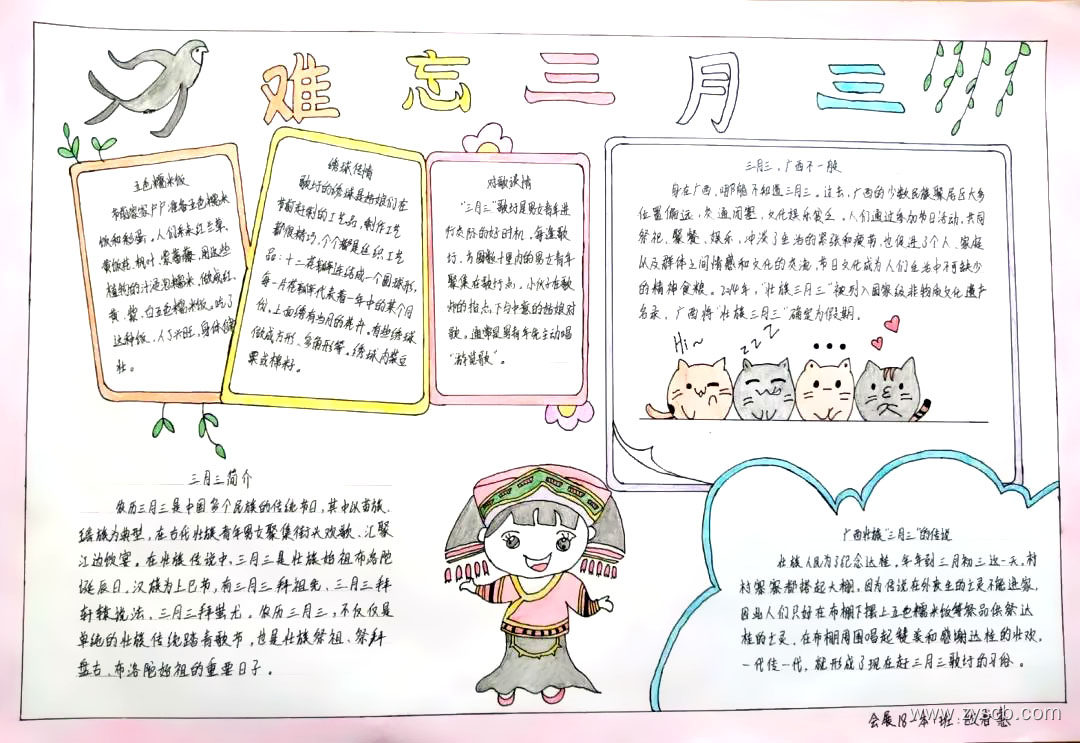 难忘三月三
五色糯米饭
节前家家户户准备五色糯米
饭和彩蛋。人们采来红兰草、
黄饭花、枫叶、紫蕃藤,用这些
植物的汁浸泡糯米,做成红、
黄、紫、白五色糯米饭。吃了
这种饭,人丁兴旺,身体健
壮。
绣球传情
歌圩的绣球是姑娘们在
节前赶制的工艺品,制作工艺
都很精巧,个个都是丝织工艺
品:十二花瓣连结成一个圆球形,
每一片花瓣代表着一年中的某个月
份,上面绣有当月的花卉。有些绣球
做成方形、多角形等。绣球内装豆
粟或棉籽。
对歌谈情
“三月三”歌圩是男女青年进
行交际的好时机。每逢歌
圩,方圆数十里内的男女青年
聚集在歌圩点,小伙子在歌
师的指点,下与中意的姑娘对
歌。通常是男青年先主动唱
“游览歌”。
三月三,广西不一般
身在广西,哪能不知道三月三。过去,广西的少数民族聚居区大多
位置偏远,交通闭塞,文化娱乐贫乏。人们通过参加节日活动,共同
祭祀、聚餐、娱乐,冲淡了生活的紧张和疲劳,也促进了个人、家庭
以及群体之间情感和文化的交流,节日文化成为人们生活中不可缺少
的精神食粮。2014年,“壮族三月三”被列入国家级非物质文化遗产
名录,广西将“壮族三月三”确定为假期。
Hi~
zzZ
三月三简介
农历三月三是中国多个民族的传统节日,其中以苗族、
瑶族为典型,在古代壮族青年男女聚集街头欢歌、汇聚
江边饮宴。在壮族传说中,三月三是壮族始祖布洛陀
诞辰日,汉族为上巳节,有三月三拜祖先、三月三拜
轩辕说法,三月三拜蚩尤。农历三月三,不仅仅是
单纯的壮族传统踏青歌节,也是壮族祭祖、祭拜
盘古、布洛陀始祖的重要日子。
广西壮族“三月三”的传说
壮族人民为了纪念达桂,年年到三月初三这一天,村
村寨寨都搭起大棚,因为传说在外丧生的土灵不能进家,
因此人们只好在布棚下摆上五色糯米饭等祭品供祭达
桂的土灵,在布棚周围唱起赞美和感谢达桂的壮欢,
一代传一代,就形成了现在赶三月三歌圩的习俗。
会展18-本1班:
www.zyscb.com